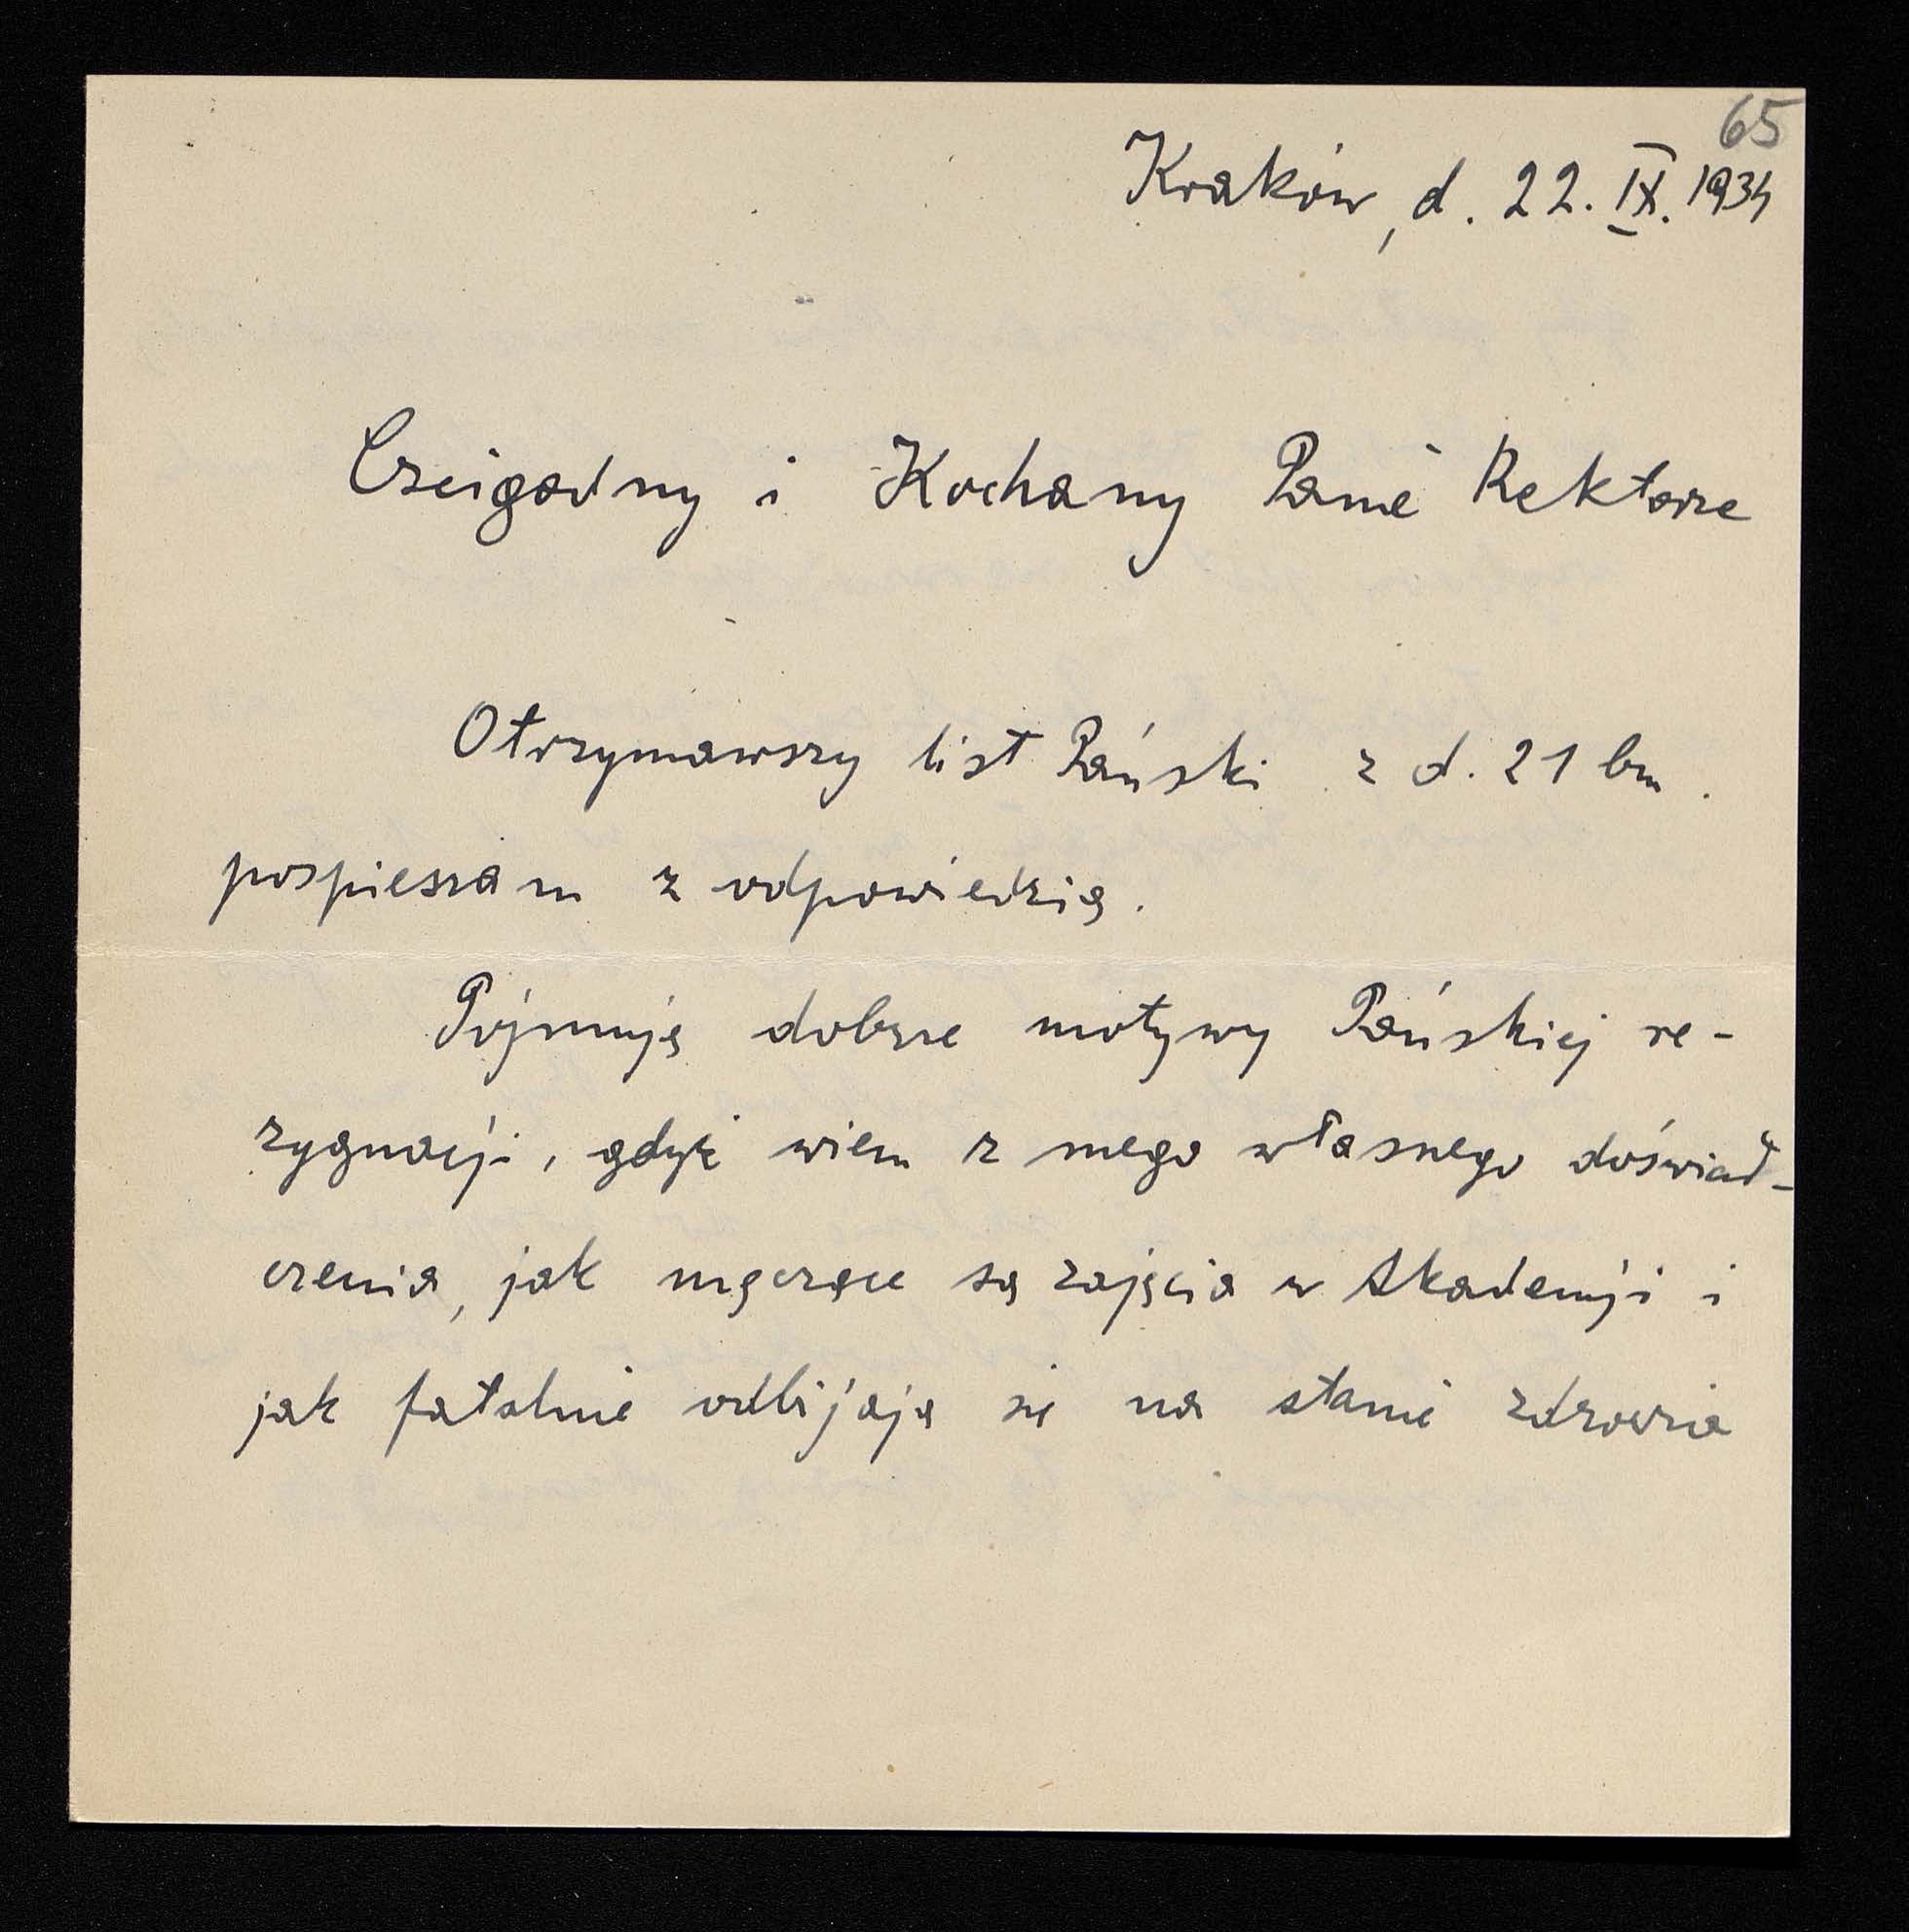 65
Kraków, d. 22. IX. 1934
Czcigodny i Kochany Panie Rektorze
Otrzymawszy list Pański z d. 21 bm.
pospieszam z odpowiedzią.
Pojmuję dobrze motywy Pańskiej re-
zygnacji, gdyż wiem z mego własnego doświad-
czenia, jak męczące są zajęcia w Akademji i
jak fatalnie odbijają się na stanie zdrowia